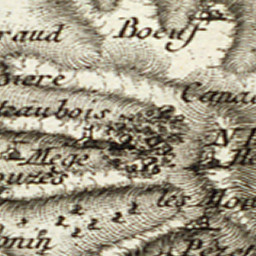 raud
Boeuf
Biere
Cana
teaubois
N
Mege
ouzés
les Mou
onin